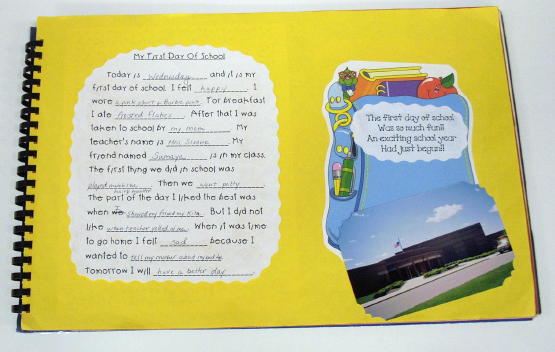 My First Day Of School
Today is Wednesday and it is my
first day of school. I felt happy. I
wore a pink shirt & Barbie pink. For breakfast
I ate frosted flakes. After that I was
taken to school by my mom. My
teacher's name is Mrs. My
friend named Samaya is in my class.
The first thing we did in school was
played. Then we went potty.
The part of the day I liked the best was
when I showed my friend my. But I did not
like when teacher yelled at me. When it was time
to go home I felt sad because I
wanted to tell my mother about my.
Tomorrow I will have a better day.
The first day of school
Was so much fun!!
An exciting school year
Had just begun!!